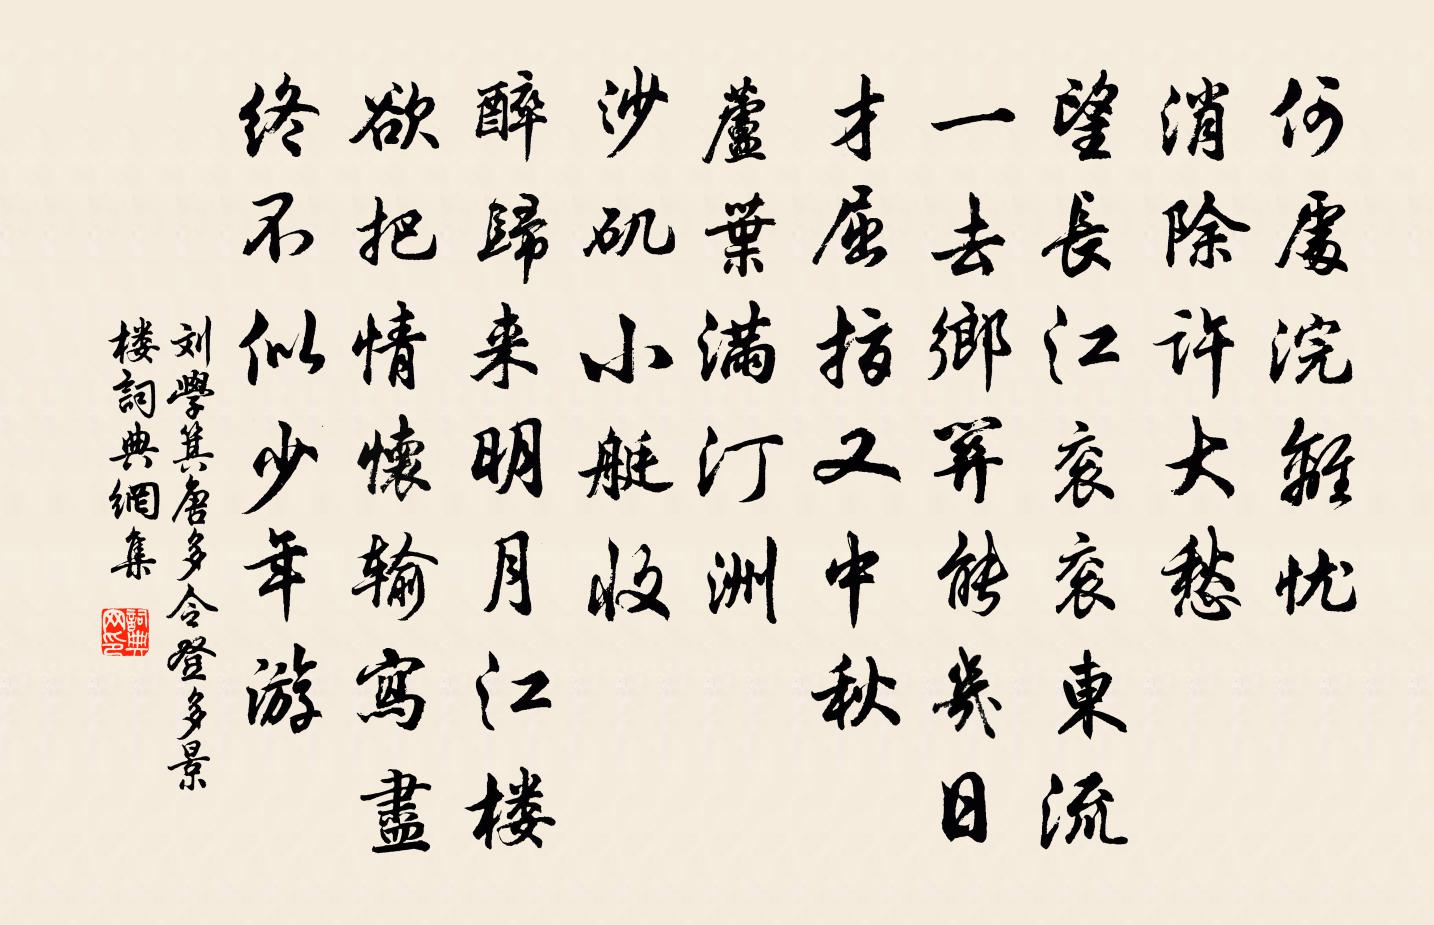 何處浣離忧
消除許大愁
望長江衮衮東流
一去鄉關能幾日
才屈指又中秋
蘆葉滿汀洲
沙矶小艇收
醉歸来明月江楼
欲把情懷输寫盡
终不似少年游
刘學箕唐多令登多景
楼詞典網集
詞典网印